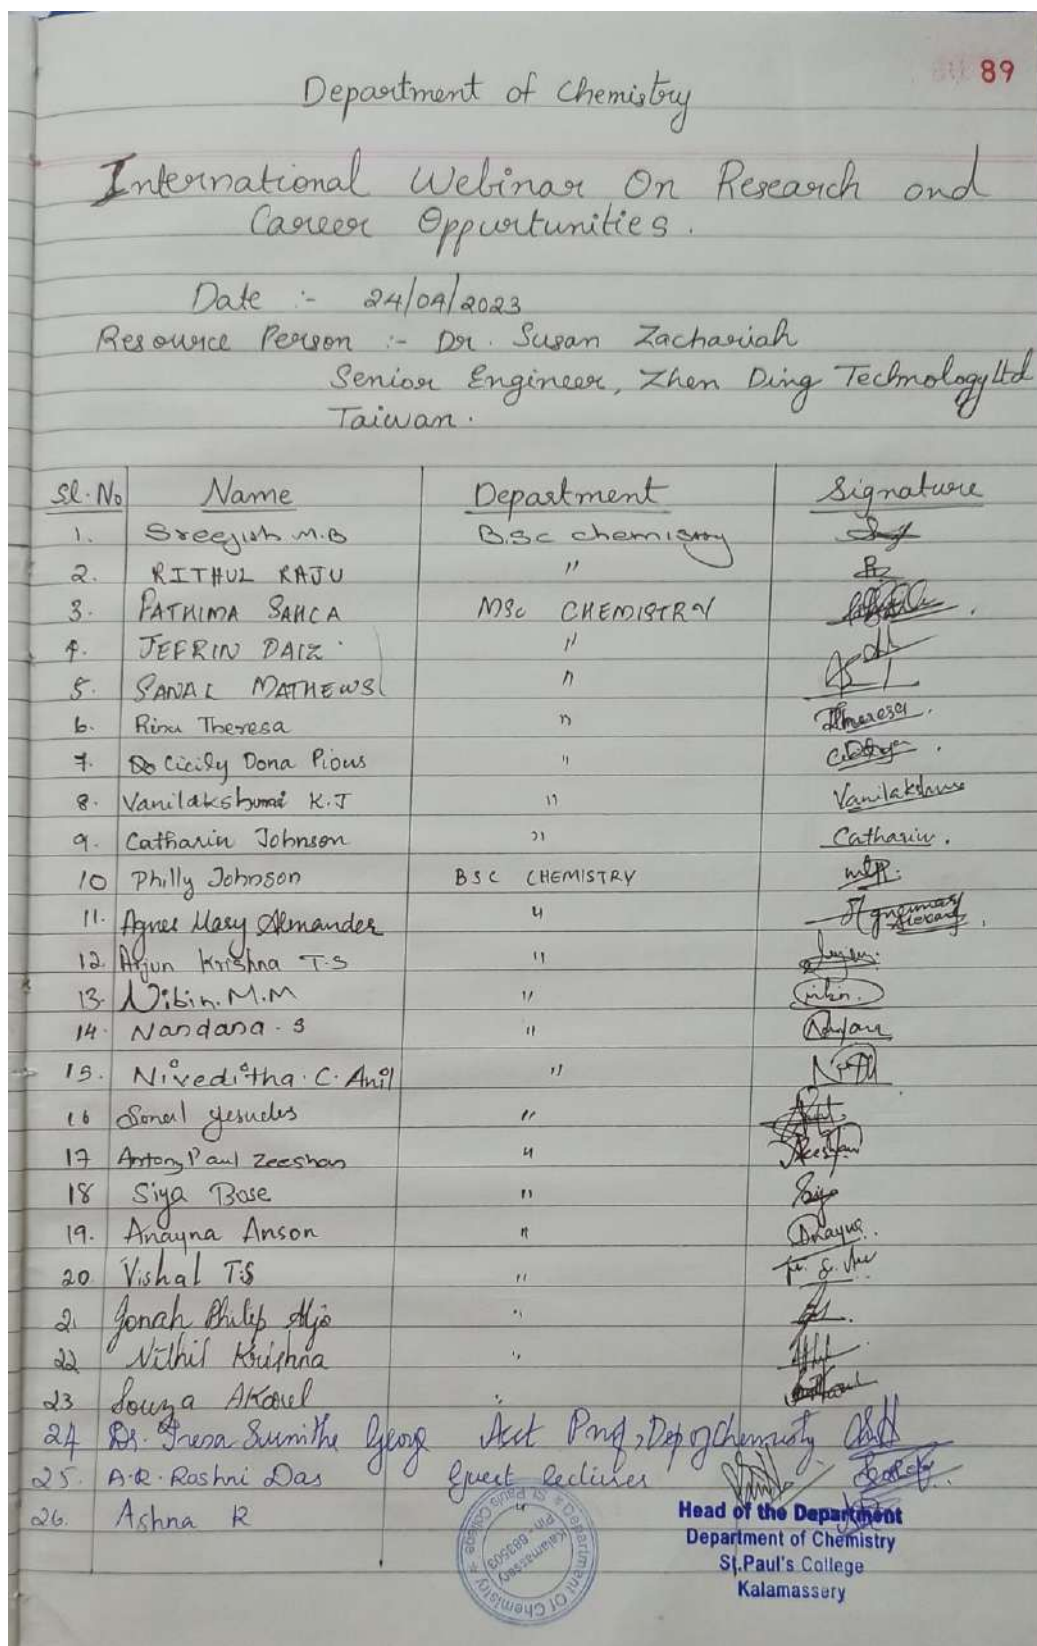 89
Department of Chemistry
International Webinar On Research and
Career Oppurtunities.
Date :- 24/04/2023
Resource Person :- Dr. Susan Zachariah
Senior Engineer, Zhen Ding Technology Ltd
Taiwan.
Sl.No Name Department Signature
1. Sreejish M.B B.Sc chemistry
2. RITHUL RAJU "
3. FATHIMA MSc CHEMISTRY
4. JEFRIN DAIZ "
5. SANAL MATHEWS "
6. Rinu Theresa " Theresa.
7. Cicily Dona Pious "
8. Vanilakshmi K.J " Vanilakshmi
9. Catharin Johnson " Catharin.
10 Philly Johnson BSC CHEMISTRY
11. Agnes Mary "
12. Arjun Krishna T.S "
13. Nibin.M.M "
14. Nandana.S "
15. Niveditha.C.Anil "
16 Sonal Yesudas "
17 Antony Paul Zeeshan "
18 Siya Bose " Siya
19. Anayna Anson " Anayna.
20. Vishal T.S "
21 Jonah Philip "
22 Nithil Krishna "
23 Souza "
24 Dr. Sumitha Asst Prof, Dep of Chemistry
25. A.R. Roshni Das Guest lecturer
26. Ashna R "
Department Of Chemistry * St. Paul's College *
Kalamassery
Pin - 683503
Head of the Department
Department of Chemistry
St.Paul's College
Kalamassery